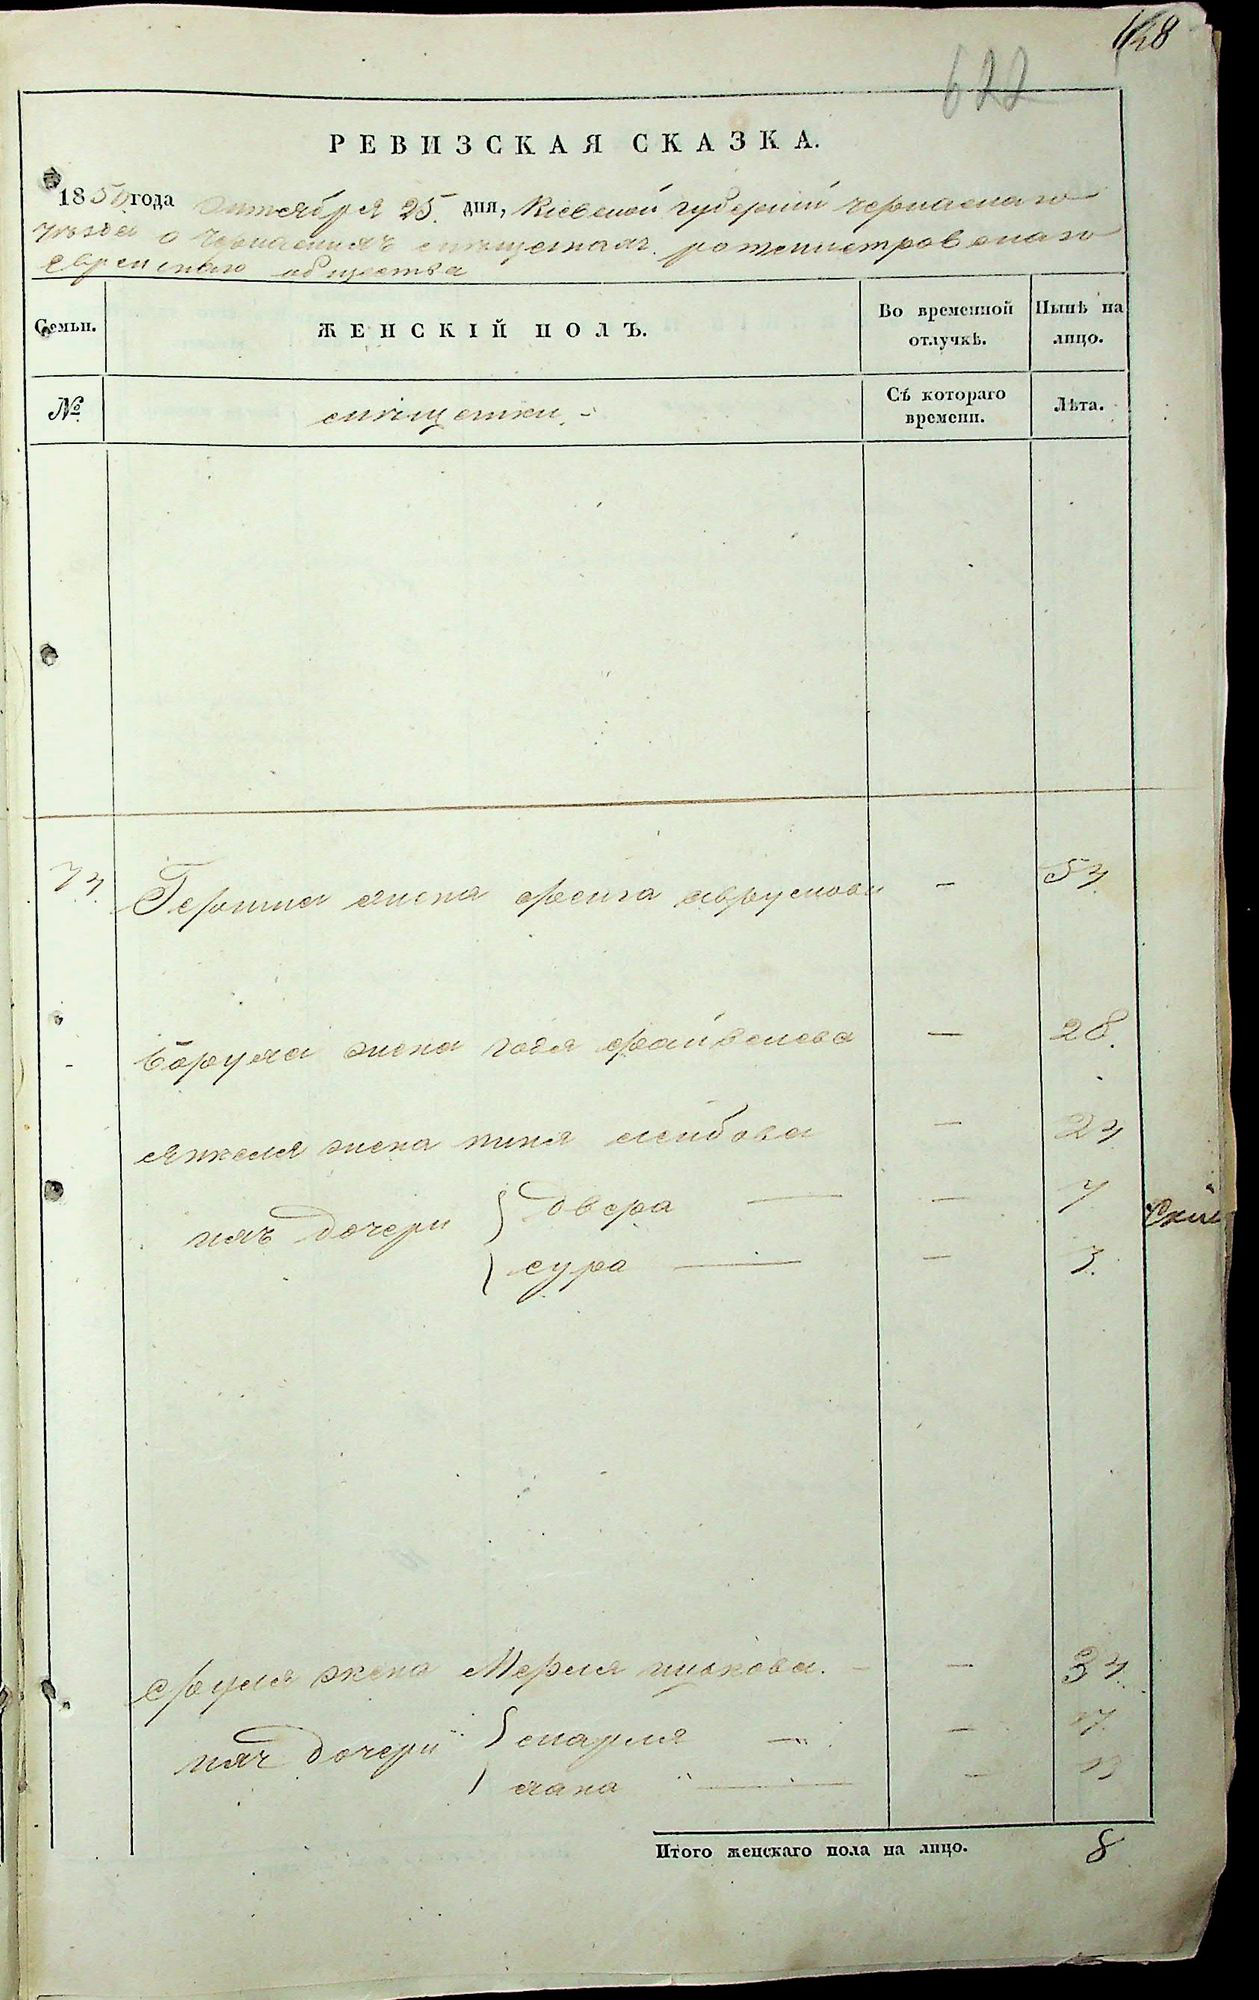 622
РЕВИЗСКАЯ СКАЗКА.
1850 года Октября 25 дня, Кіевской губерніи черкаскаго
уѣзда о черкаскихъ
еврейскаго общества
Семьи. ЖЕНСКІЙ ПОЛЪ. Во временной отлучкѣ. Нынѣ на лицо.
№ Съ котораго времени. Лѣта.
74 Гершка жена фейга -
Боруха жена годя файвелева — 28.
Янкеля жена лейбова — 24
ихъ дочери двера — — 7
сура — — 3.
Сруля жена Мерля — — 34
ихъ дочери — —
хана — —
Итого женскаго пола на лицо. 8